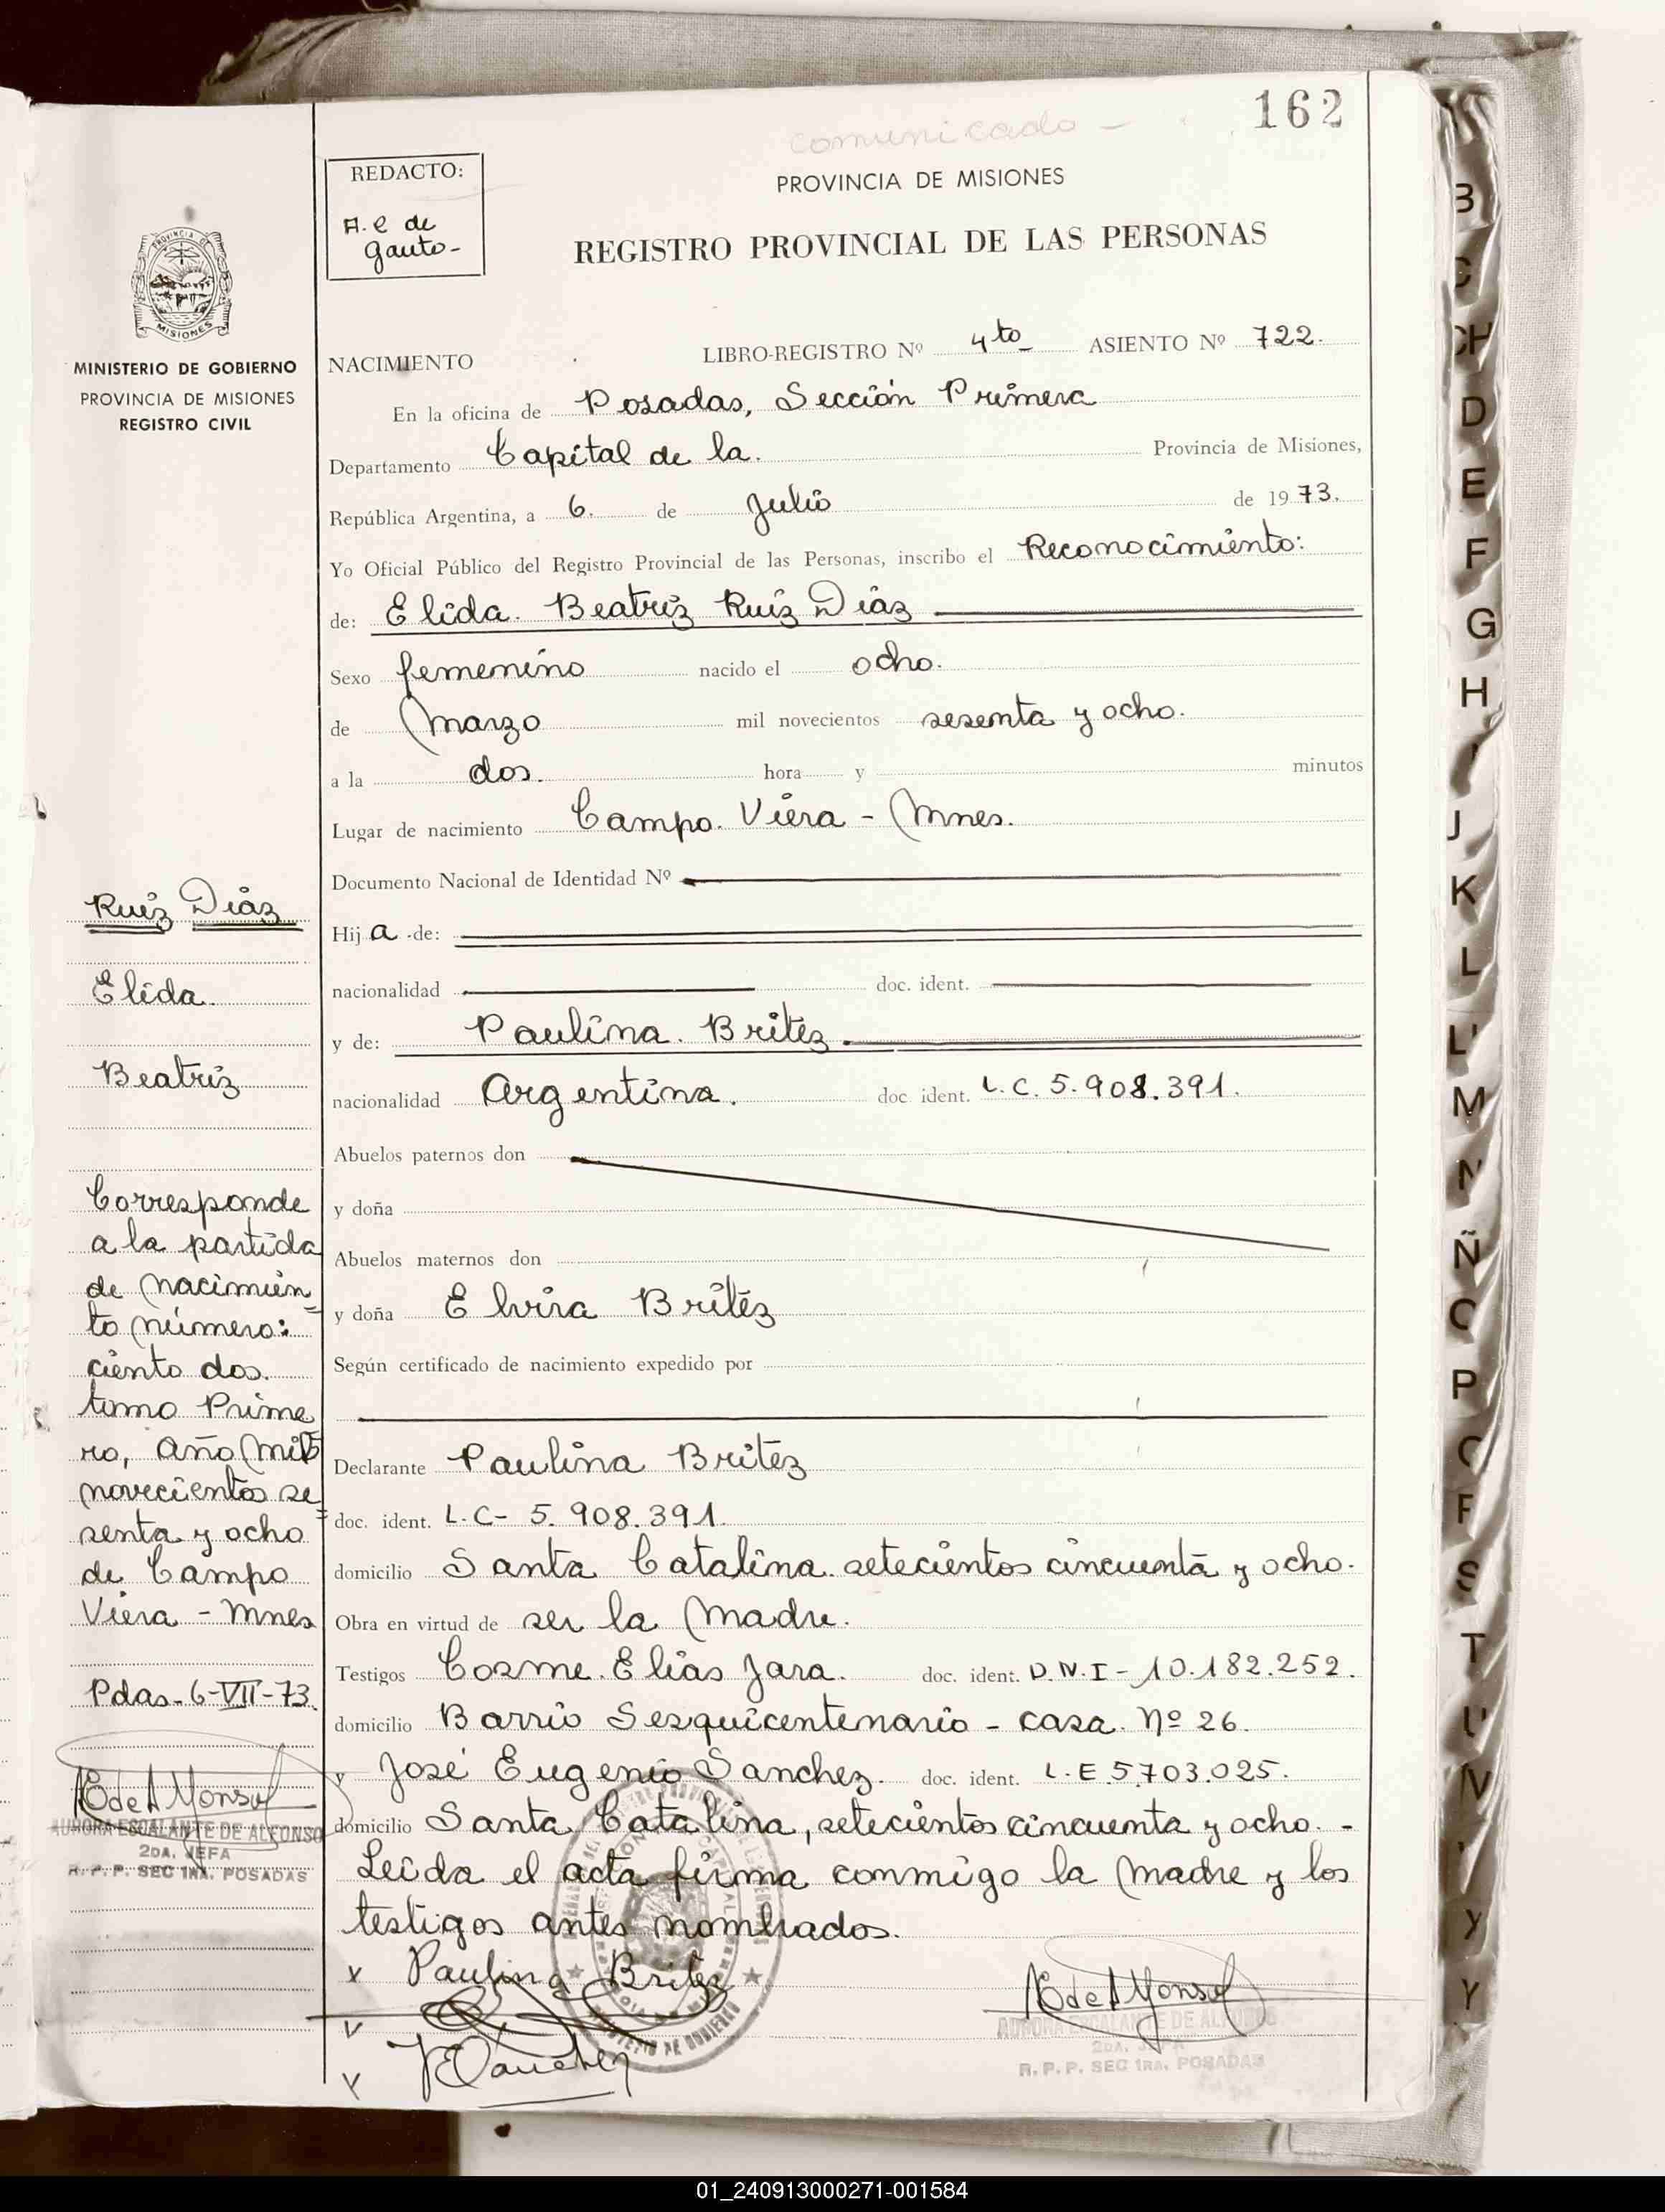 162
comunicado -
REDACTO:
A. E de
Gauto-
PROVINCIA DE MISIONES
REGISTRO PROVINCIAL DE LAS PERSONAS
MISIONES
MINISTERIO DE GOBIERNO
PROVINCIA DE MISIONES
REGISTRO CIVIL
NACIMIENTO LIBRO-REGISTRO Nº 4to ASIENTO Nº 722.
En la oficina de Posadas, Sección Primera
Departamento Capital de la. Provincia de Misiones,
República Argentina, a 6. de Julio de 1973.
Yo Oficial Público del Registro Provincial de las Personas, inscribo el Reconocimiento:
de: Elida. Beatriz Ruiz Diaz
Sexo femenino nacido el ocho.
de Marzo mil novecientos sesenta y ocho.
a la dos. hora y minutos
Lugar de nacimiento Campo. Viera - Mnes.
Documento Nacional de Identidad Nº
Hij a de:
nacionalidad doc. ident.
y de: Paulina. Britez
nacionalidad Argentina. doc ident. L.C. 5.908.391.
Abuelos paternos don
y doña
Abuelos maternos don
y doña Elvira Britez
Según certificado de nacimiento expedido por
Declarante Paulina Britez
doc. ident. L.C- 5.908.391.
domicilio Santa Catalina setecientos cincuenta y ocho.
Obra en virtud de ser la Madre.
Testigos Cosme. Elias Jara. doc. ident. D.N.I- 10.182.252.
domicilio Barrio Sesquicentenario - casa. Nº 26.
y José Eugenio Sanchez. doc. ident. L.E 5.703.025.
domicilio Santa Catalina, setecientos cincuenta y ocho. -
Leida el acta firma conmigo la Madre y los
testigos antes nombrados.
Paulina Britez
JESanchez
AURORA ESCALANTE DE ALFONSO
2DA. JEFA
R.P.P. SEC 1RA. POSADAS
Ruiz Diaz
Elida
Beatriz
Corresponde
a la partida
de Nacimien
to número:
ciento dos.
tomo Prime
ro, año Mil
novecientos se
senta y ocho
de Campo
Viera - Mnes
Pdas-6-VII-73.
AURORA ESCALANTE DE ALFONSO
2DA. JEFA
R.P.P. SEC 1RA. POSADAS
B
C
CH
D
E
F
G
H
J
K
L
M
N
Ñ
P
S
T
U
V
Y
01_240913000271-001584